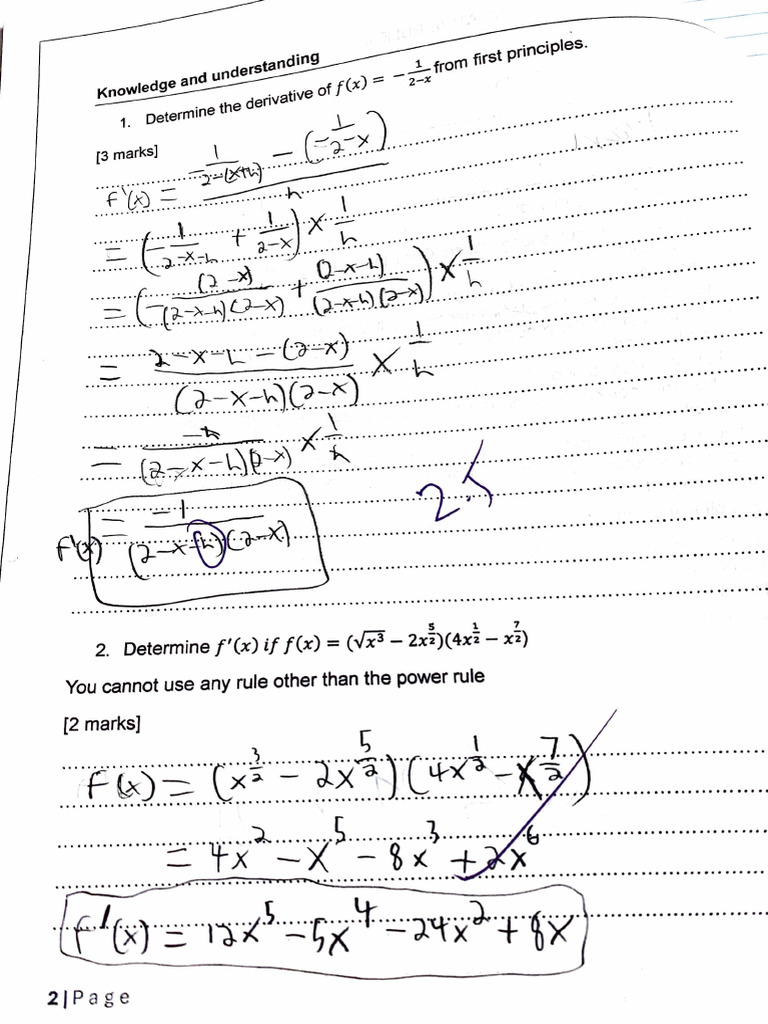 Knowledge and understanding
1. Determine the derivative of f(x) = −1/(2−x) from first principles.
[3 marks]
f'(x) = (−1/(2−(x+h)) − (−1/(2−x)))/h
= (−1/(2−x−h) + 1/(2−x)) × 1/h
= (−(2−x)/((2−x−h)(2−x)) + (2−x−h)/((2−x−h)(2−x))) × 1/h
= (2−x−h−(2−x))/((2−x−h)(2−x)) × 1/h
= −h/((2−x−h)(2−x)) × 1/h
f'(x) = −1/((2−x−h)(2−x))
2.5
2. Determine f'(x) if f(x) = (√x³ − 2x^(5/2))(4x^(1/2) − x^(7/2))
You cannot use any rule other than the power rule
[2 marks]
f(x) = (x^(3/2) − 2x^(5/2))(4x^(1/2) − x^(7/2))
= 4x² − x⁵ − 8x³ + 2x⁶
f'(x) = 12x⁵ − 5x⁴ − 24x² + 8x
2 | Page